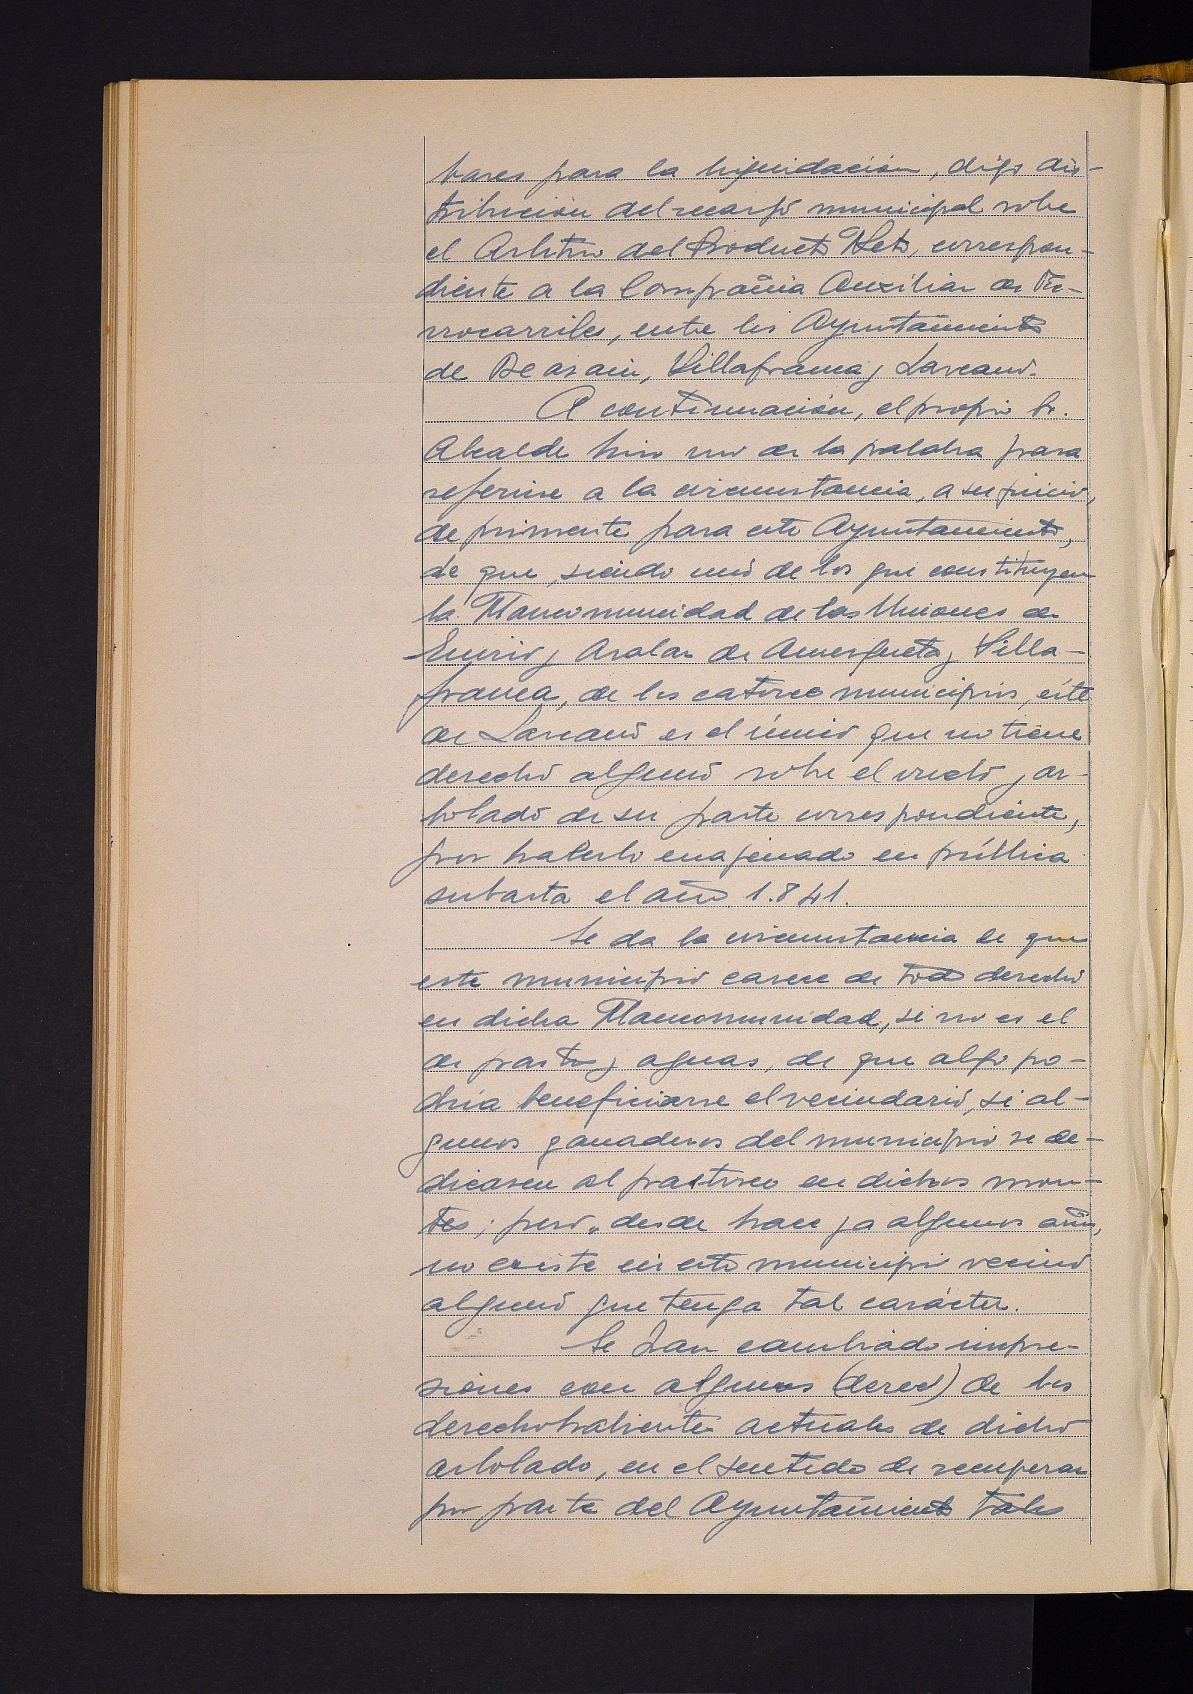 bases para la liquidación, digo dis-
tribución del recargo municipal sobre
el Arbitrio del Producto Neto, correspon-
diente a la Compañía Auxiliar de Fe-
rrocarriles, entre los Ayuntamientos
de Beasain, Villafranca y Lazcano.
A continuación, el propio Sr.
Alcalde hizo uso de la palabra para
referirse a la circunstancia, a su juicio,
deprimente para este Ayuntamiento,
de que, siendo uno de los que constituyen
la Mancomunidad de las Uniones de
Enirio y Aralar de Amezqueta y Villa-
franca, de los catorce municipios, éste
de Lazcano es el único que no tiene
derecho alguno sobre el vuelo y ar-
bolado de su parte correspondiente,
por haberlo enajenado en pública
subasta el año 1.841.
Se da la circunstancia de que
este municipio carece de todo derecho
en dicha Mancomunidad, si no es el
de pastos y aguas, de que algo po-
dría beneficiarse el vecindario, si al-
gunos ganaderos del municipio se de-
dicasen al pastoreo en dichos mon-
tes; pero, desde hace ya algunos años,
no existe en este municipio vecino
alguno que tenga tal carácter.
Se han cambiado impre-
siones con algunos (derec) de los
derechohabientes actuales de dicho
arbolado, en el sentido de recuperar
por parte del Ayuntamiento tales